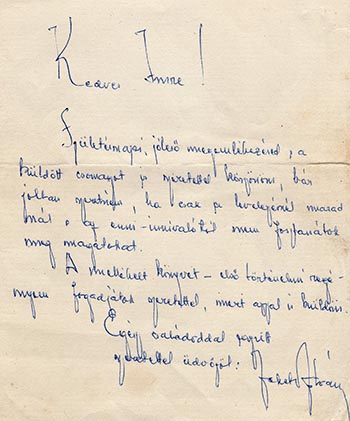 Kedves Imre!
Születésnapi, jóleső megemlékezésed, a
küldött csomagot is szeretettel köszönöm, bár
jobban szeretném, ha csak a levelezésnél marad
már s az enni-innivalóktól nem fosztanátok
meg magatokat.
A mellékelt könyvet – első történelmi regé-
nyem fogadjátok szeretettel, mert azzal is küldöm.
Egész családoddal együtt
szeretettel üdvözöl:
István